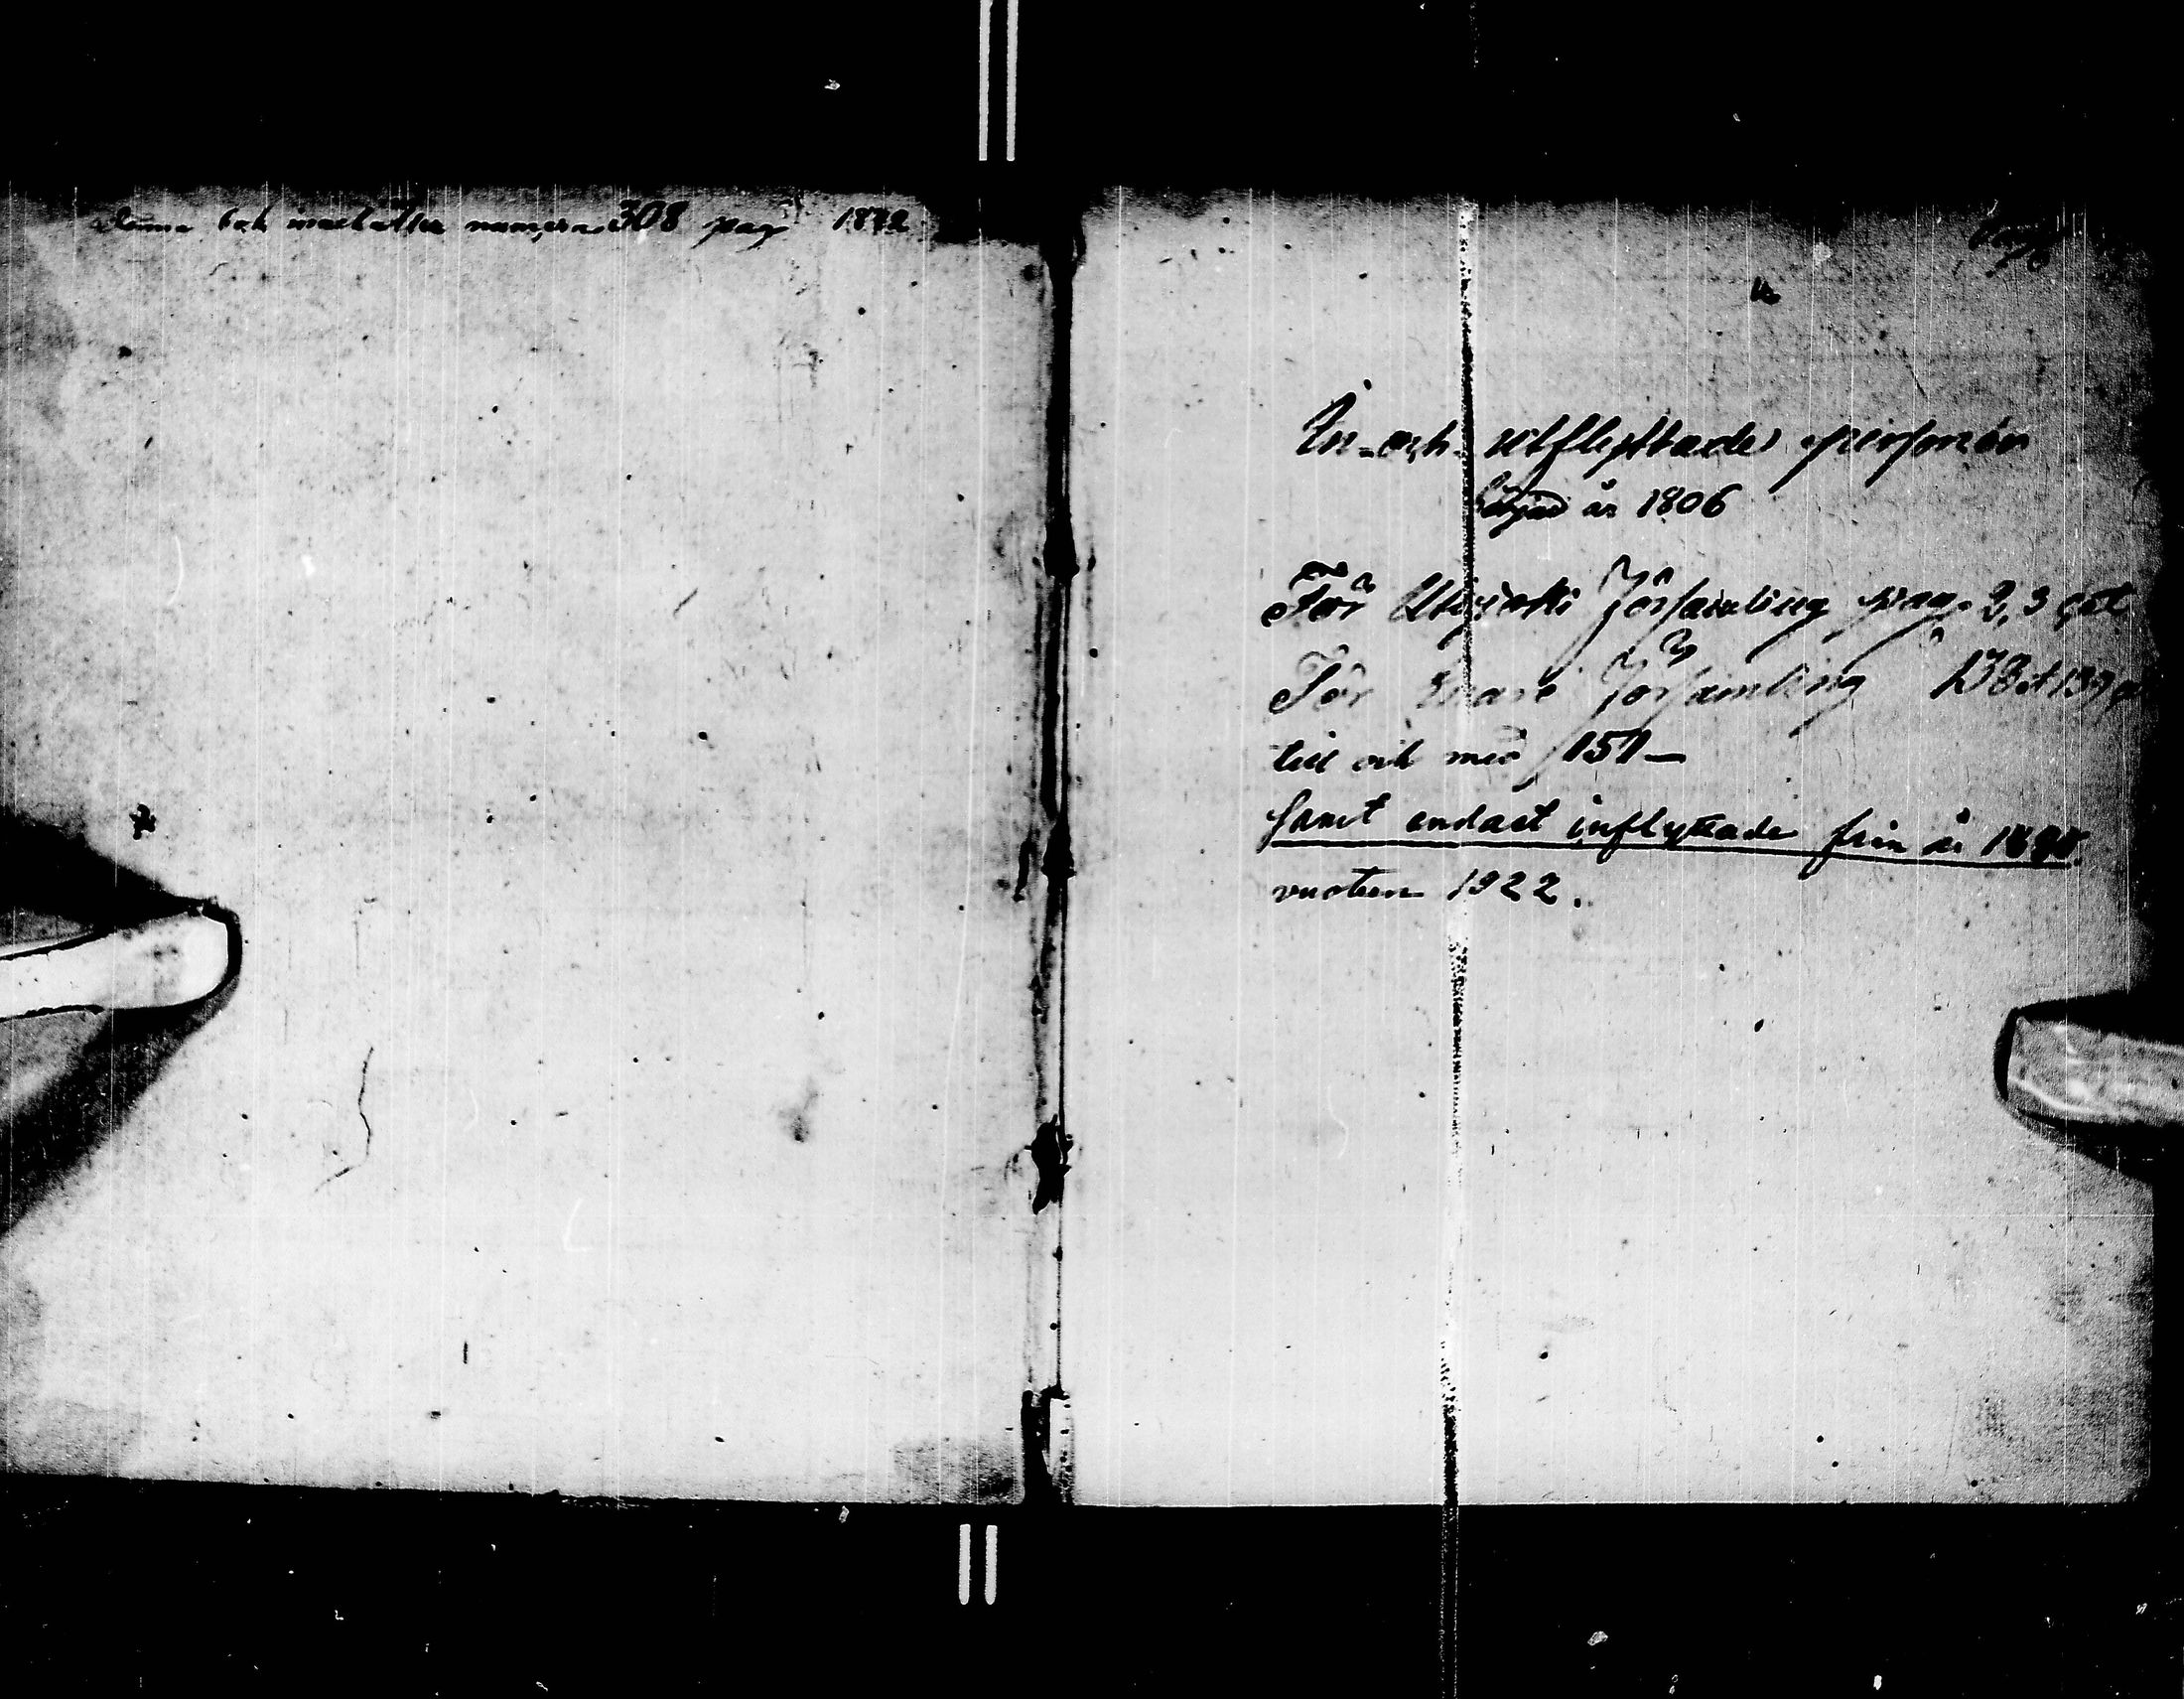 Denna bok innehåller numera 308 pag 1872
In- och utflyttade personer
börjad år 1806
För Utsjoki Församling pag. 2, 3 etc
För Enare Församling 138 et 139
till och med 151 –
samt endast inflyttade från år 1880.
vuoteen 1922.